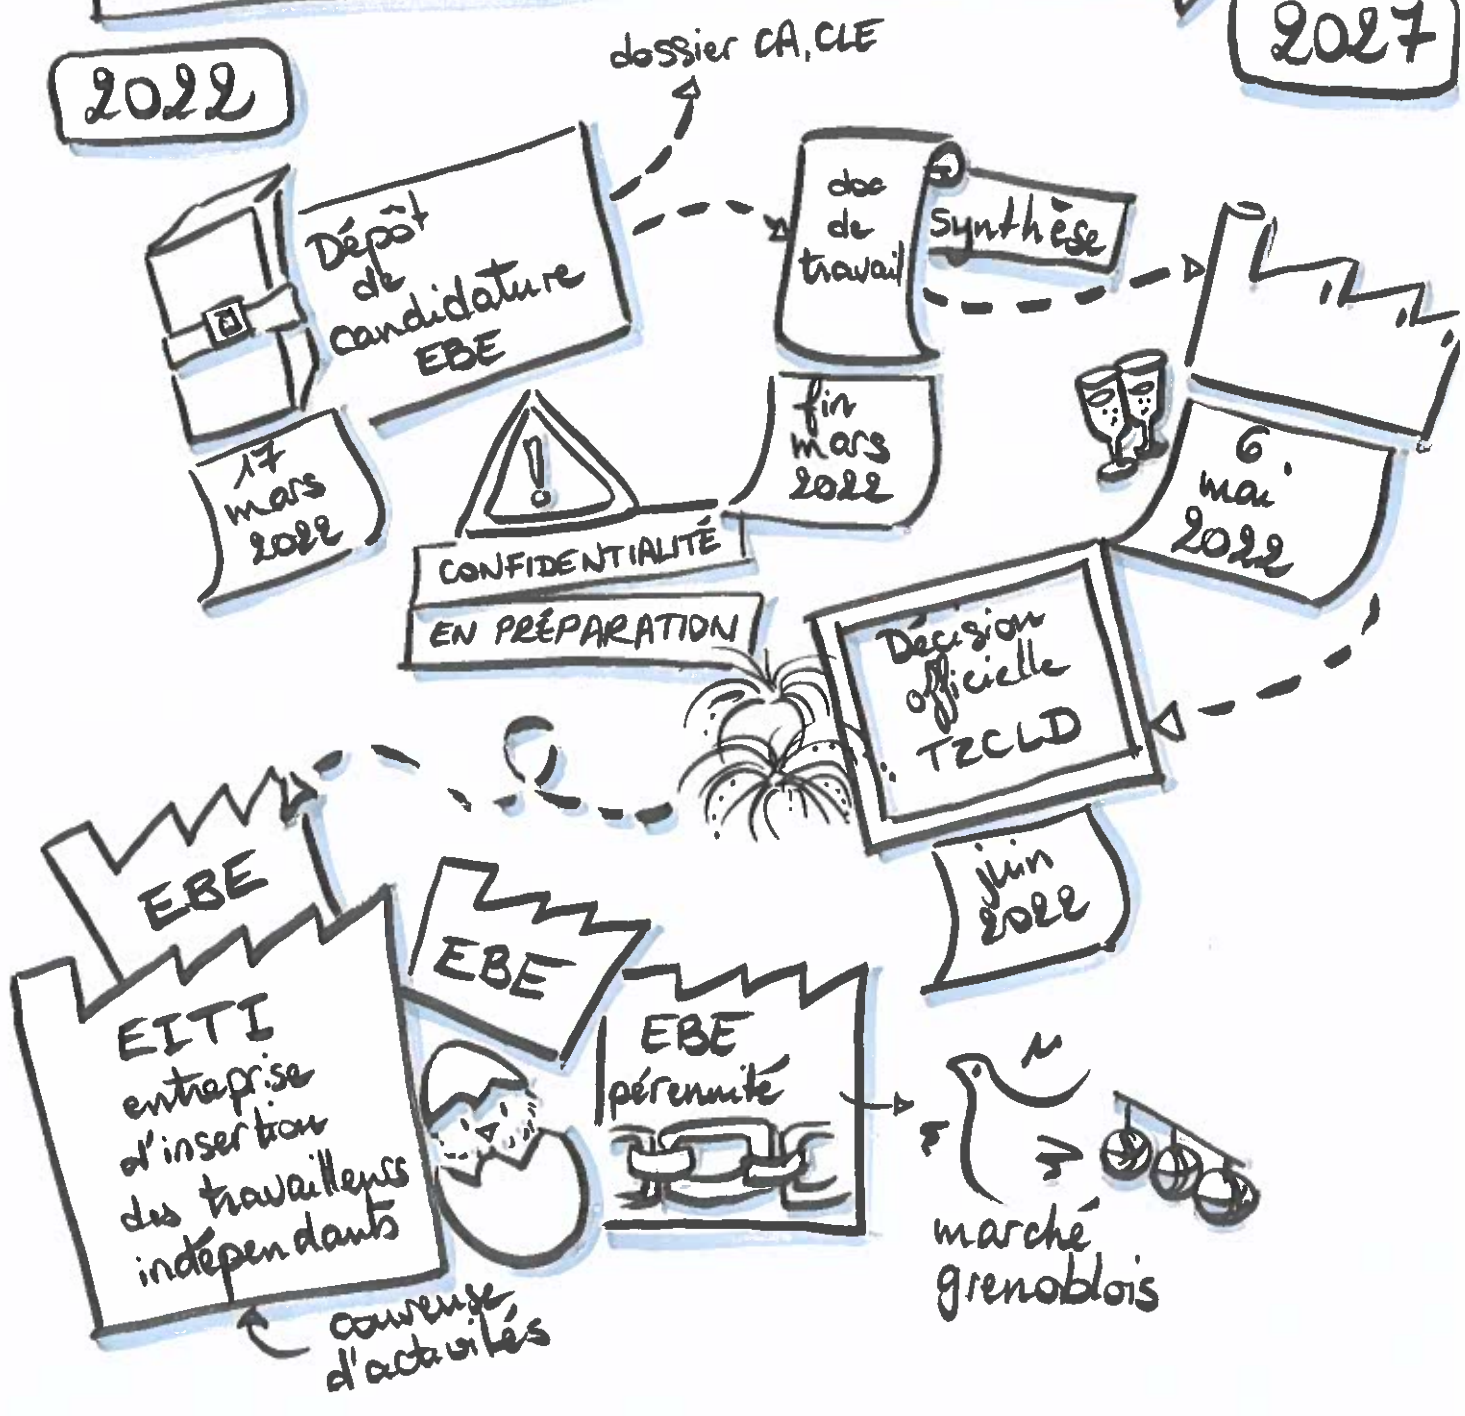 2022
2027
dossier CA, CLE
Dépôt
de
candidature
EBE
17
mars
2022
doc
de
travail
synthèse
fin
mars
2022
6
mai
2022
!
CONFIDENTIALITÉ
EN PRÉPARATION
Décision
officielle
TZCLD
juin
2022
EBE
EBE
EITI
entreprise
d'insertion
des travailleurs
indépendants
couveuse
d'activités
EBE
pérennité
marché
grenoblois